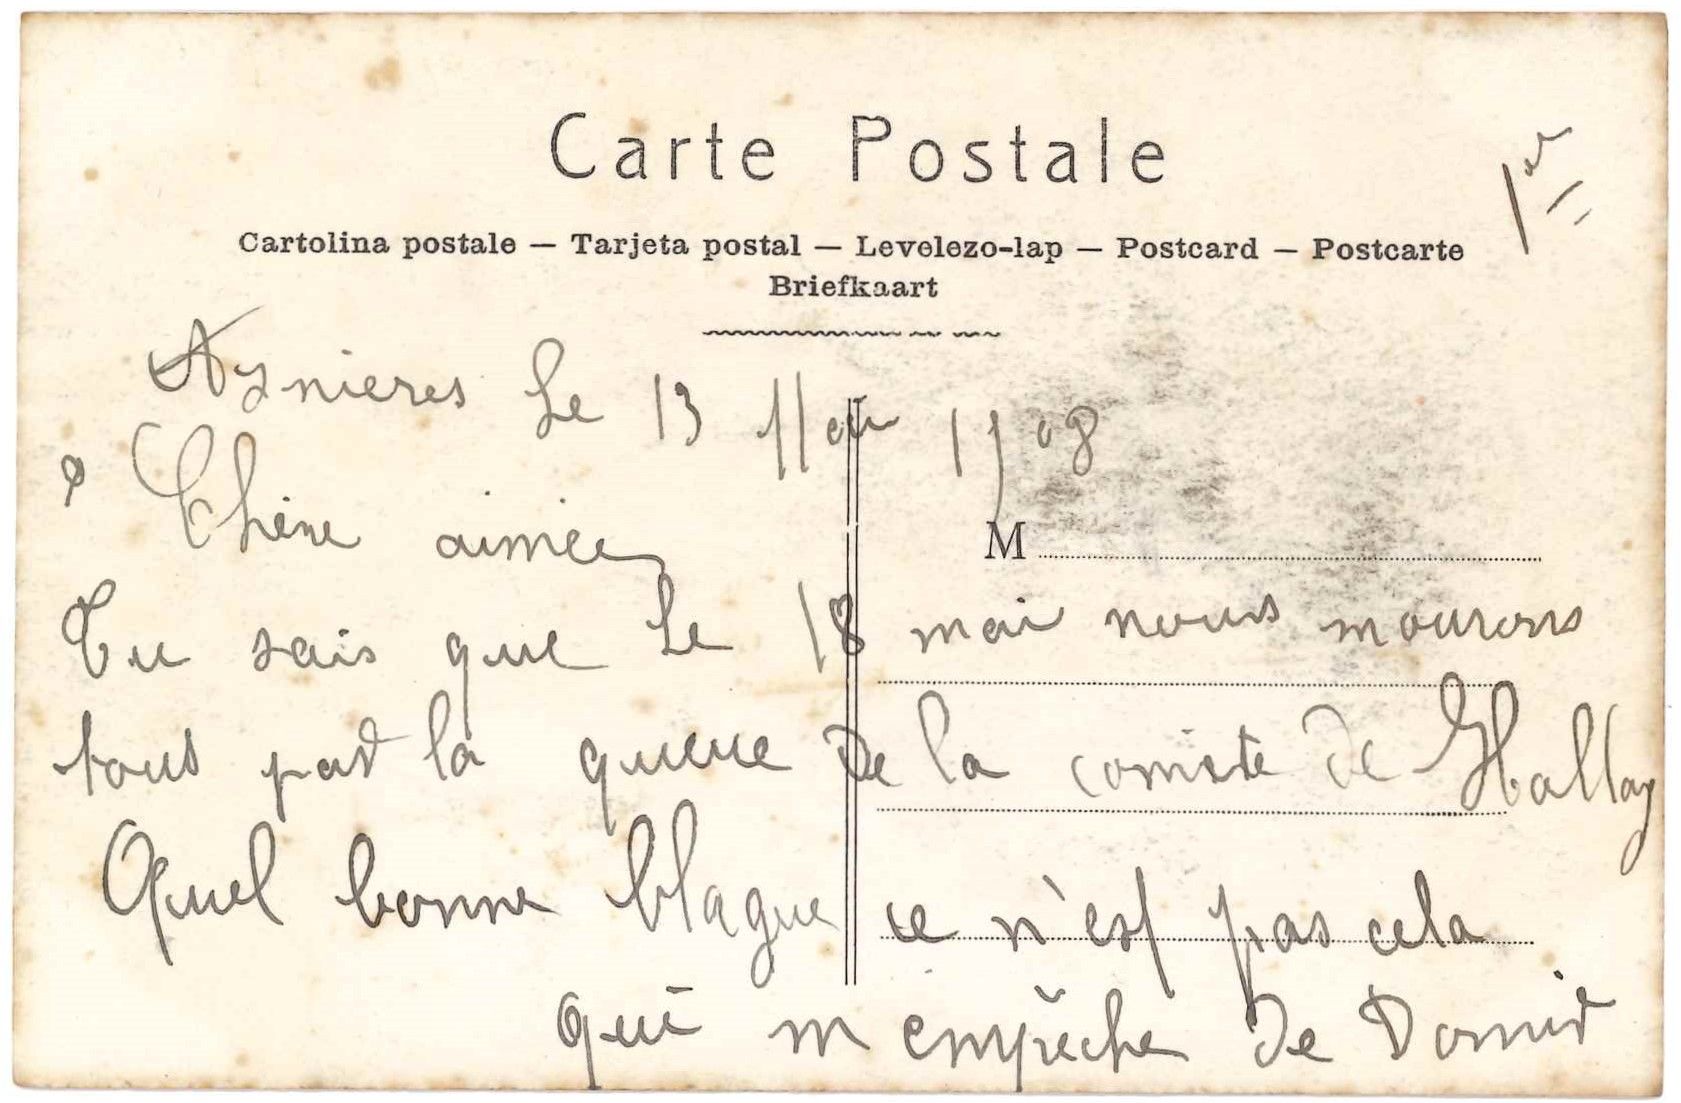 Carte Postale
1er
Cartolina postale — Tarjeta postal — Levelezo-lap — Postcard — Postcarte
Briefkaart
Aznieres Le 13 1908
Chère aimée
M
Tu sais que Le 18 mai nous mourons
tous par la queue de la comète de Hallay
Quel bonne blague ce n'est pas cela
qui m empêche de Dormir